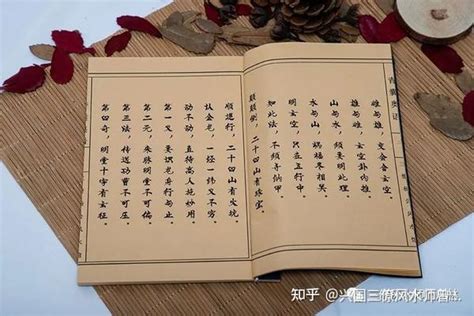 青囊奥语
雌与雄，交会合玄空。
雄与雌，玄空卦内推。
山与水，须要明此理。
水与山，祸福尽相关。
明玄空，只在五行中。
知此法，不须寻纳甲。
颠颠倒，二十四山有珠宝。
顺逆行，二十四山有火坑。
认金龙，一经一纬义不穷。
动不动，直待高人施妙用。
第一义，要识龙身行与止。
第二言，来脉明堂不可偏。
第三法，传送功曹不高压。
第四奇，明堂十字有玄微。
知乎 @兴国三僚风水师曾